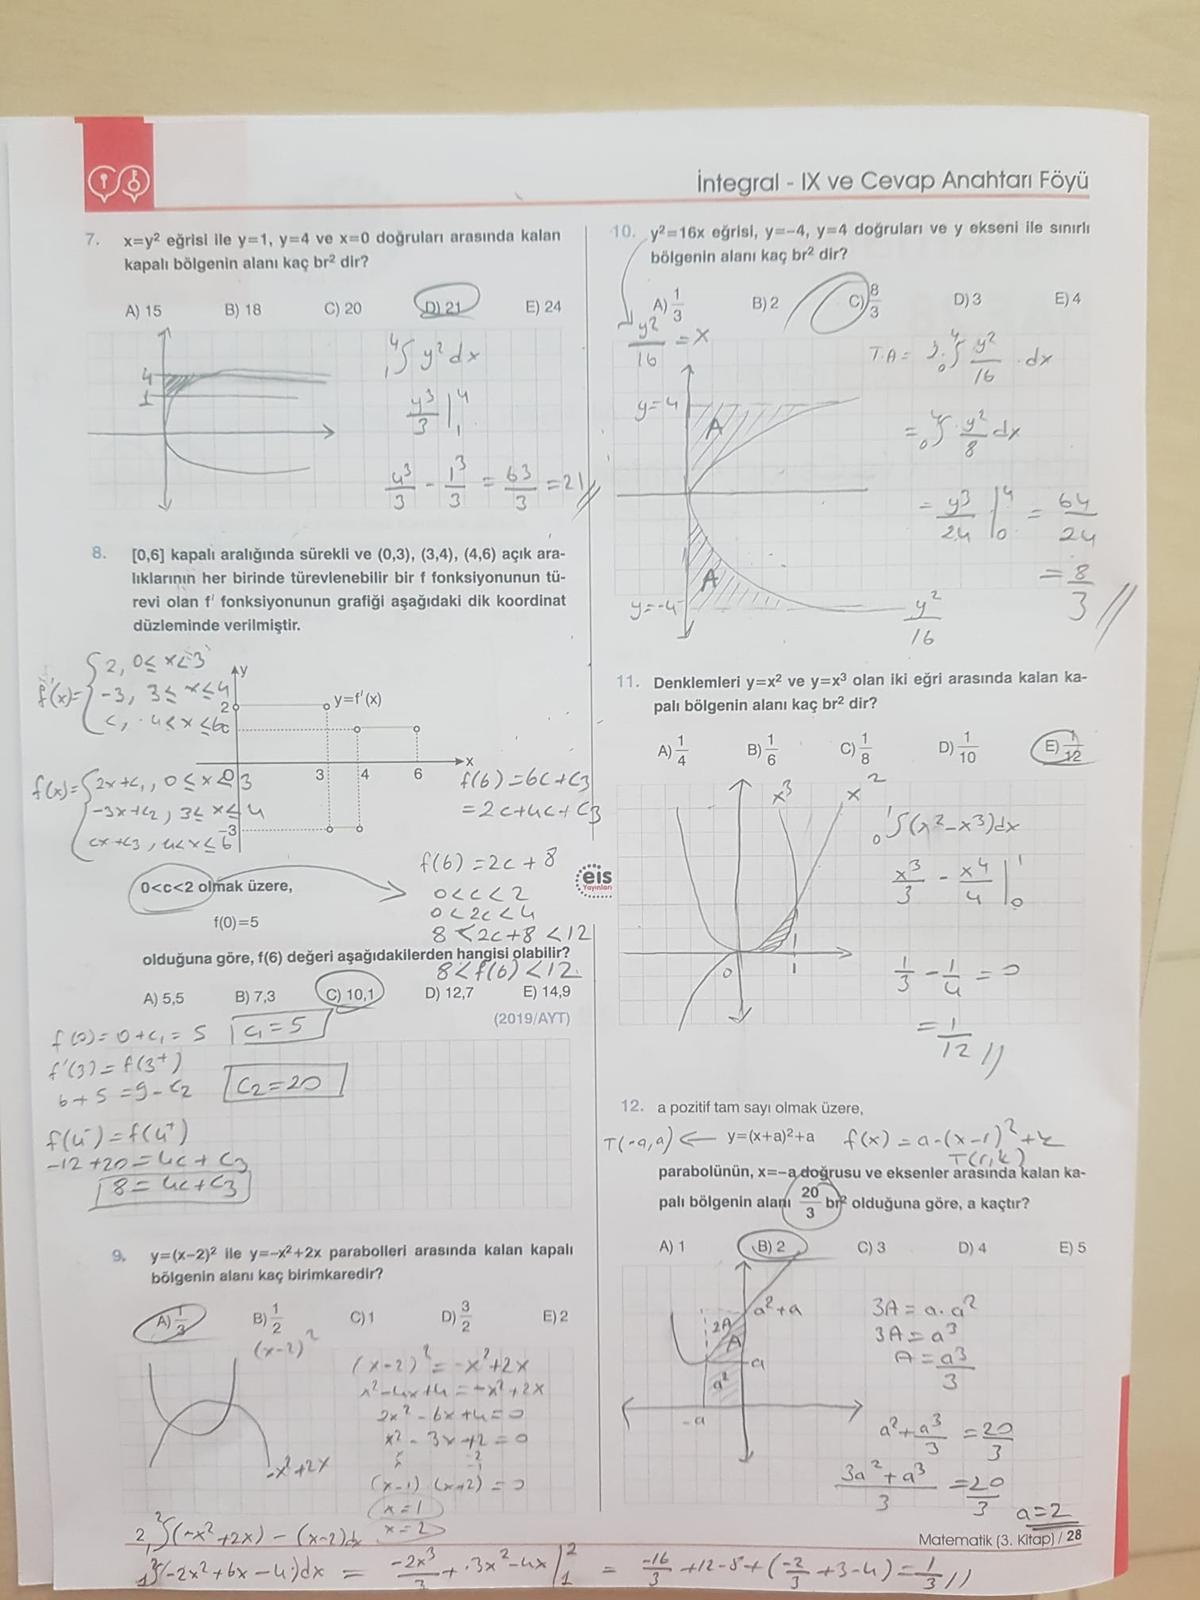 İntegral - IX ve Cevap Anahtarı Föyü
7. x=y² eğrisi ile y=1, y=4 ve x=0 doğruları arasında kalan
kapalı bölgenin alanı kaç br² dir?
A) 15 B) 18 C) 20 D) 21 E) 24
4
1
₁⁴∫ y² dx
y³/3 |₁⁴
4³/3 - 1³/3 = 63/3 = 21//
8. [0,6] kapalı aralığında sürekli ve (0,3), (3,4), (4,6) açık ara-
lıklarının her birinde türevlenebilir bir f fonksiyonunun tü-
revi olan f' fonksiyonunun grafiği aşağıdaki dik koordinat
düzleminde verilmiştir.
f'(x)= { 2, 0≤x<3
-3, 3≤x≤4
c, 4<x≤6
y
2
y=f'(x)
c
0 3 4 6 x
-3
f(x)= { 2x+c₁, 0≤x<3
-3x+c₂, 3≤x≤4
cx+c₃, 4<x≤6
f(6)=6c+c₃
=2c+4c+c₃
f(6)=2c+8
0<c<2
0<2c<4
8<2c+8<12
8<f(6)<12
0<c<2 olmak üzere,
f(0)=5
olduğuna göre, f(6) değeri aşağıdakilerden hangisi olabilir?
A) 5,5 B) 7,3 C) 10,1 D) 12,7 E) 14,9
(2019/AYT)
f(0)=0+c₁=5 c₁=5
f'(3)=f(3⁺)
6+5=9-c₂ c₂=20
f(4⁻)=f(4⁺)
-12+20=4c+c₃
8=4c+c₃
9. y=(x-2)² ile y=-x²+2x parabolleri arasında kalan kapalı
bölgenin alanı kaç birimkaredir?
A) 1/3 B) 1/2 C) 1 D) 3/2 E) 2
(x-2)²
-x²+2x
(x-2)²=-x²+2x
x²-4x+4=-x²+2x
2x²-6x+4=0
x²-3x+2=0
x -2
x -1
(x-1)(x+2)=0
x=1
x=2
₁²∫(-x²+2x)-(x-2)dx
₁²∫(-2x²+6x-4)dx = -2x³/3 + 3x²-4x |₁² = -16/3+12-8+(-2/3+3-4)=1/3//
10. y²=16x eğrisi, y=-4, y=4 doğruları ve y ekseni ile sınırlı
bölgenin alanı kaç br² dir?
A) 1/3 B) 2 C) 8/3 D) 3 E) 4
y²/16 = x
T.A= 2.₀⁴∫ y²/16 . dx
= ₀⁴∫ y²/8 dx
= y³/24 |₀⁴ = 64/24
= 8/3 //
y=4
A
A
y=-4
y²/16
11. Denklemleri y=x² ve y=x³ olan iki eğri arasında kalan ka-
palı bölgenin alanı kaç br² dir?
A) 1/4 B) 1/6 C) 1/8 D) 1/10 E) 1/12
x³ x²
0 1
₀¹∫(x²-x³)dx
x³/3 - x⁴/4 |₀¹
1/3 - 1/4 = 0
= 1/12 //
eis
Yayınları
12. a pozitif tam sayı olmak üzere,
T(-a,a) ← y=(x+a)²+a f(x)=a-(x-1)²+k
T(r,k)
parabolünün, x=-a doğrusu ve eksenler arasında kalan ka-
palı bölgenin alanı 20/3 br² olduğuna göre, a kaçtır?
A) 1 B) 2 C) 3 D) 4 E) 5
a²+a
2A
A
a
a²
-a
3A=a.a²
3A=a³
A=a³/3
a²+a³/3=20/3
3a²+a³/3=20/3
a=2
Matematik (3. Kitap) / 28